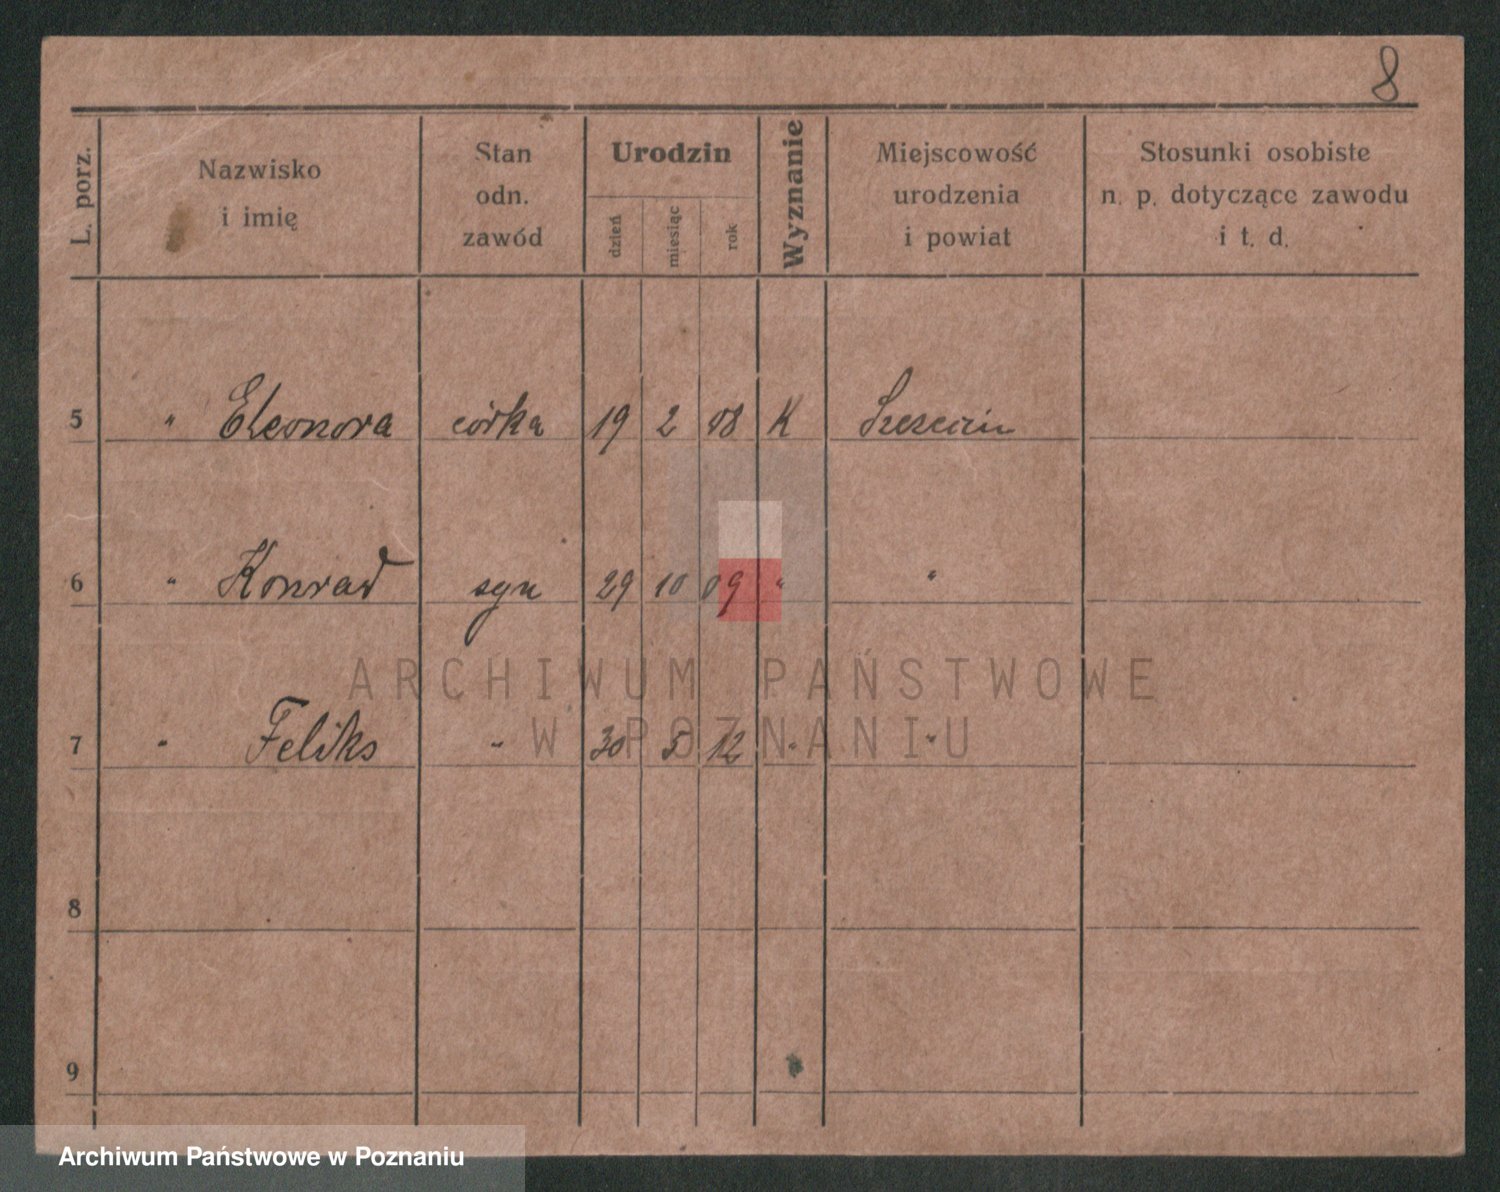 8
L. porz. Nazwisko i imię Stan odn. zawód Urodzin dzień miesiąc rok Wyznanie Miejscowość urodzenia i powiat Stosunki osobiste n. p. dotyczące zawodu i t. d.
5 " Eleonora córka 19 2 08 K Szczecin
6 " Konrad syn 29 10 09 " "
7 " Feliks " 30 5 12 " "
8
9
ARCHIWUM PAŃSTWOWE
W POZNANIU
Archiwum Państwowe w Poznaniu